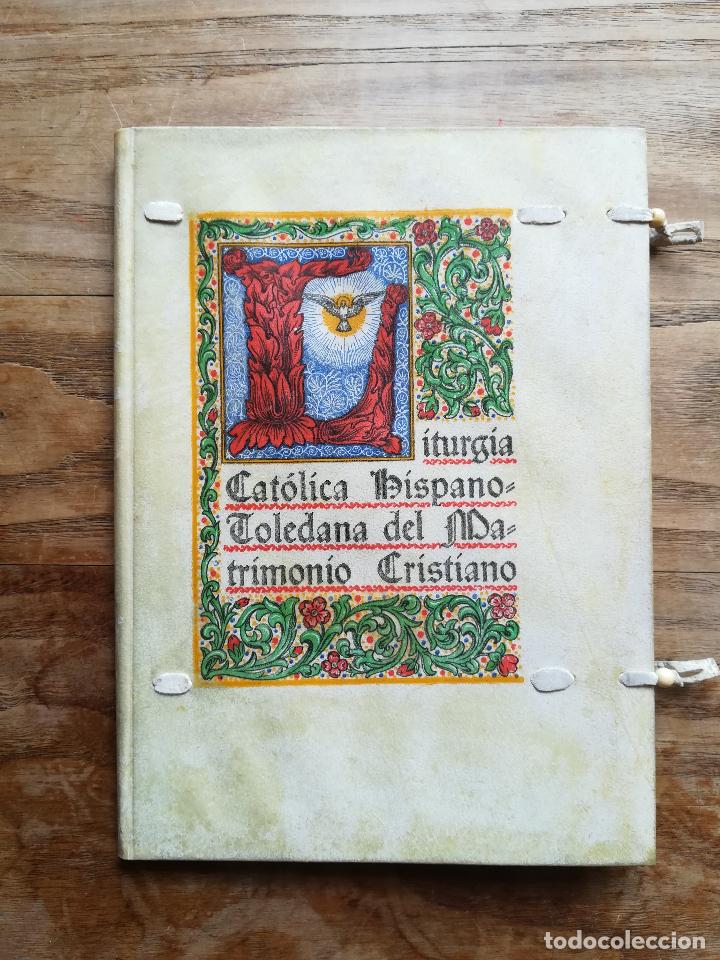 Liturgia
Católica Hispano-
Toledana del Ma-
trimonio Cristiano
todocoleccion